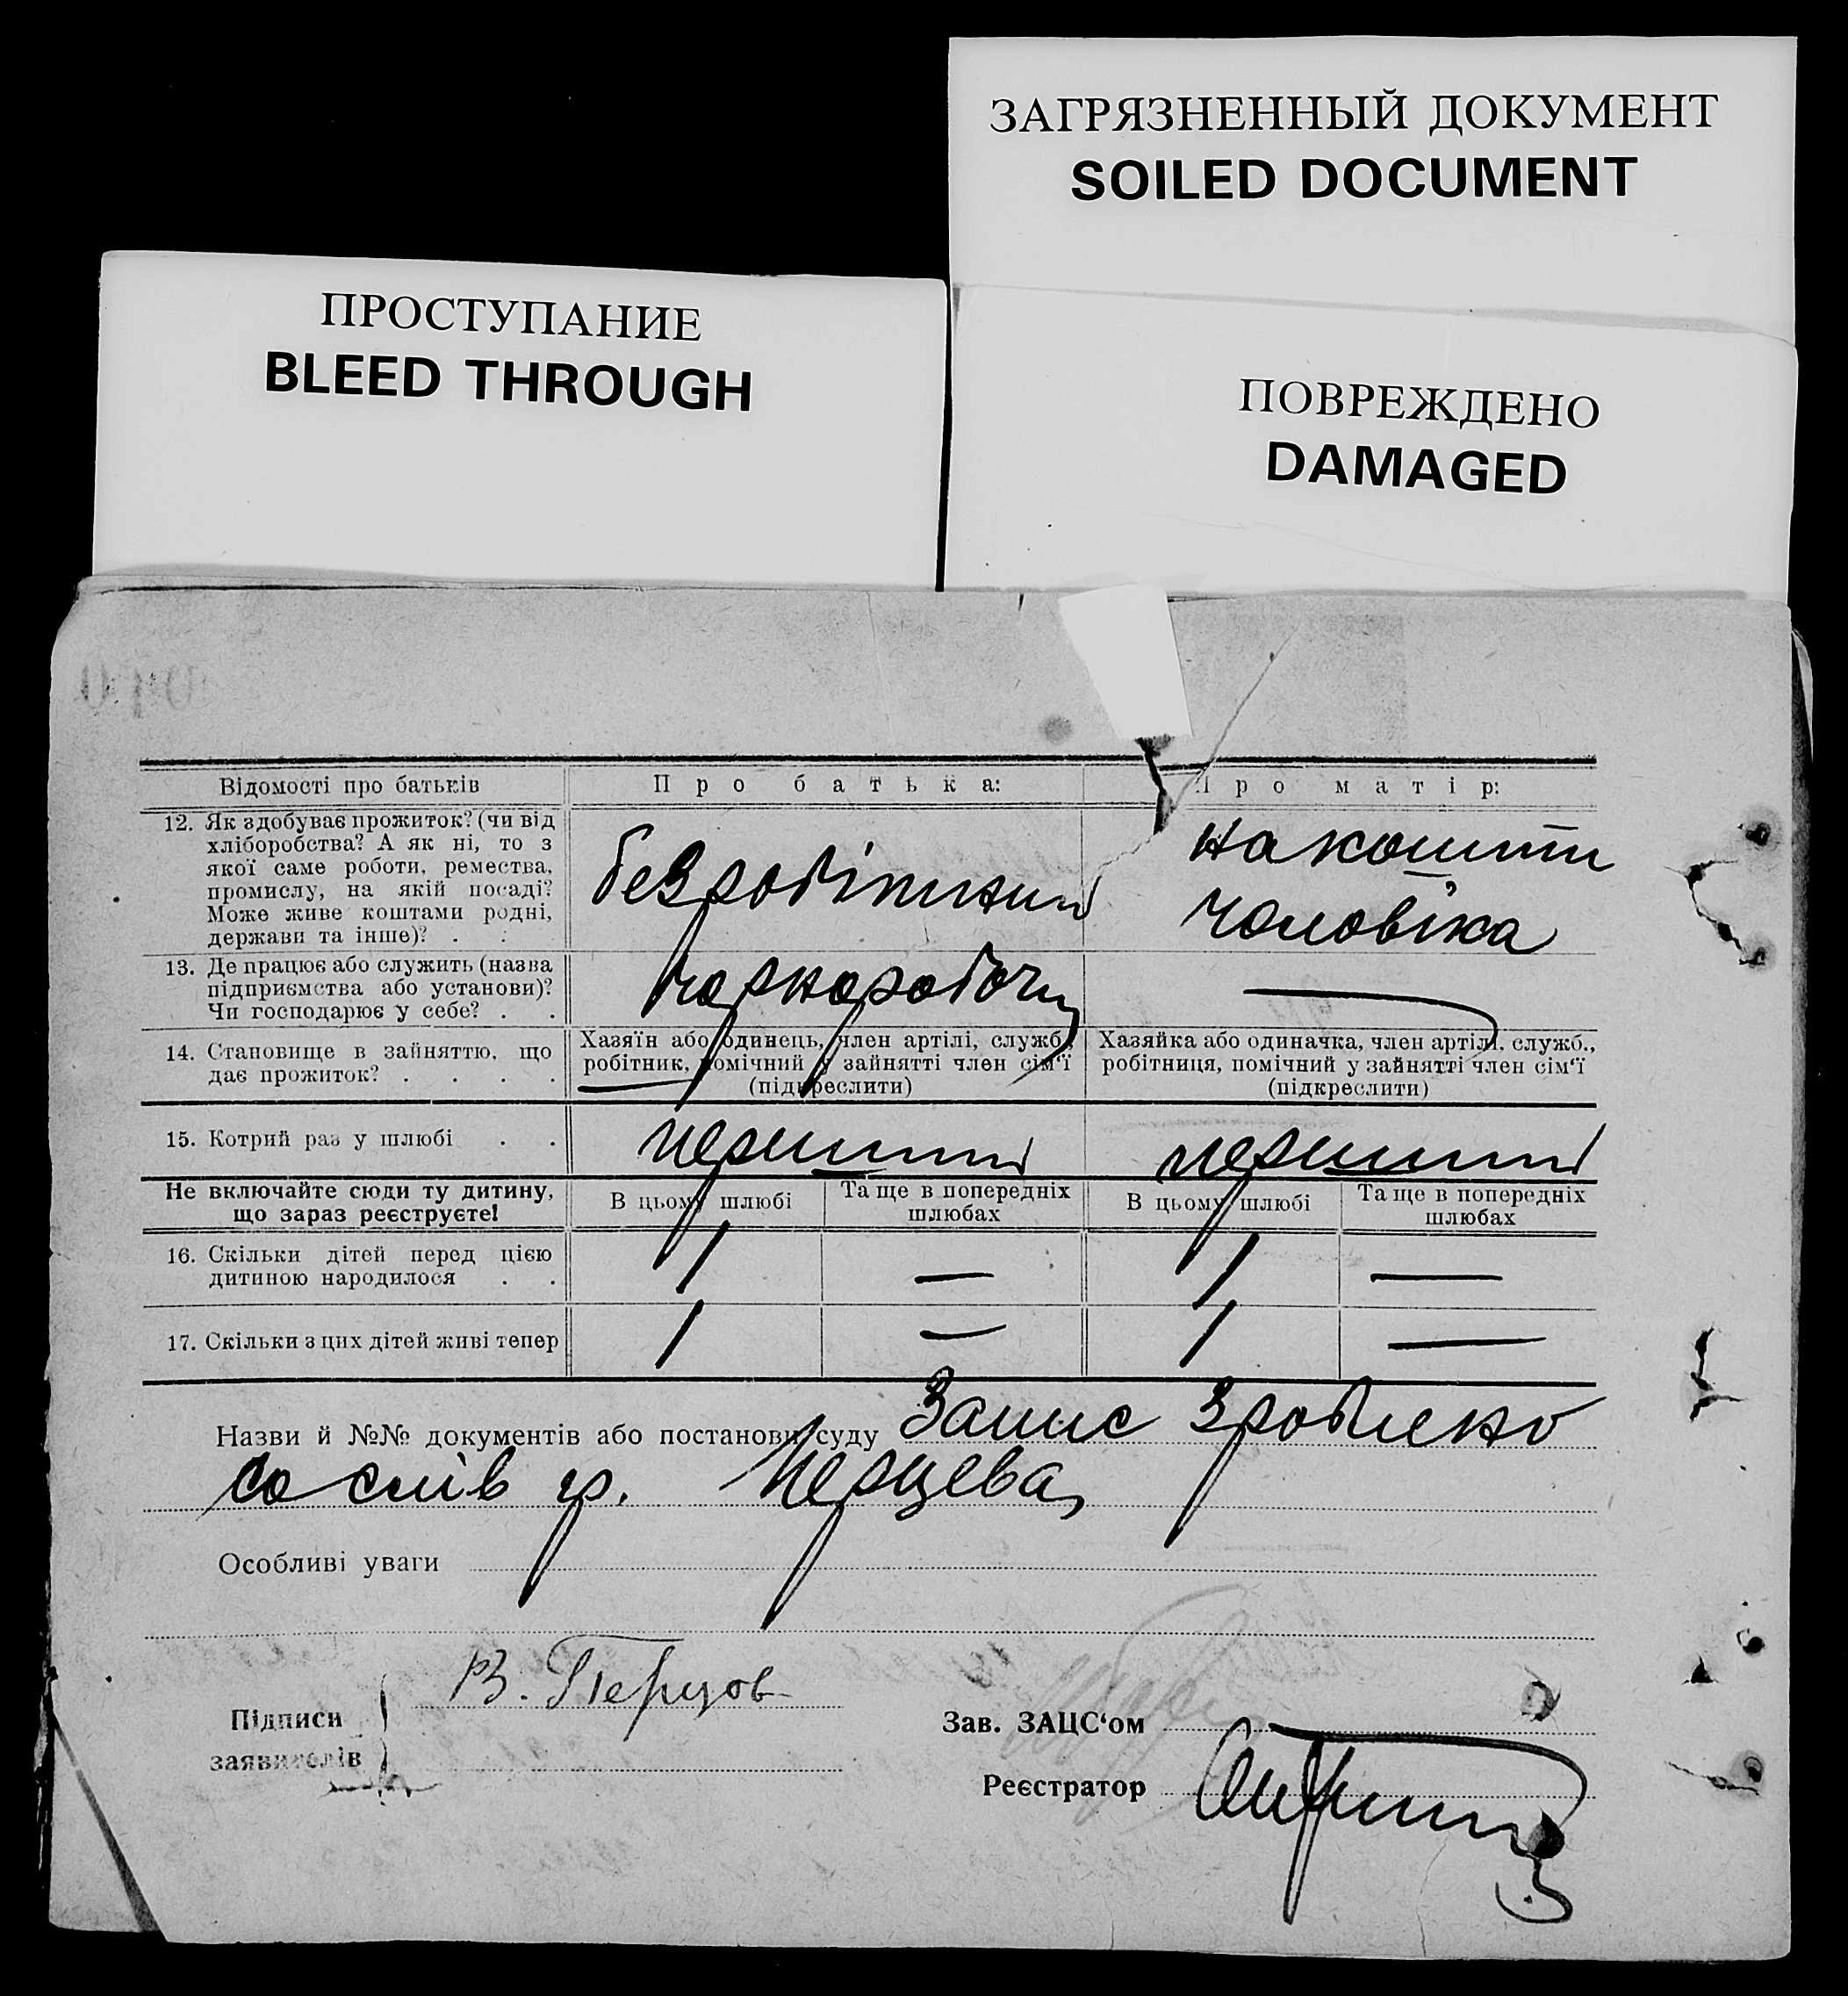 ЗАГРЯЗНЕННЫЙ ДОКУМЕНТ
SOILED DOCUMENT
ПРОСТУПАНИЕ
BLEED THROUGH
ПОВРЕЖДЕНО
DAMAGED
Відомості про батьків
Про батька:
Про матір:
12. Як здобуває прожиток? (чи від
хліборобства? А як ні, то з
якої саме роботи, ремества,
промислу, на якій посаді?
Може живе коштами родні,
держави та інше)? . .
безробітний
на кошти
чоловіка
13. Де працює або служить (назва
підприємства або установи)?
Чи господарює у себе? . .
чорноробочий
—
14. Становище в зайняттю, що
дає прожиток? . . . .
Хазяїн або одинець, член артілі, служб.,
робітник, помічний у зайнятті член сім'ї
(підкреслити)
Хазяйка або одиначка, член артілі, служб.,
робітниця, помічний у зайнятті член сім'ї
(підкреслити)
15. Котрий раз у шлюбі . .
перший
перший
Не включайте сюди ту дитину,
що зараз реєструєте!
В цьому шлюбі
Та ще в попередніх
шлюбах
В цьому шлюбі
Та ще в попередніх
шлюбах
16. Скільки дітей перед цією
дитиною народилося . .
1 — 1 —
17. Скільки з цих дітей живі тепер
1 — 1 —
Назви й №№ документів або постанови суду Запис зроблено
со слів гр. Перцева
Особливі уваги
Підписи
заявителів
В. Перцов
Зав. ЗАЦС‘ом
Реєстратор